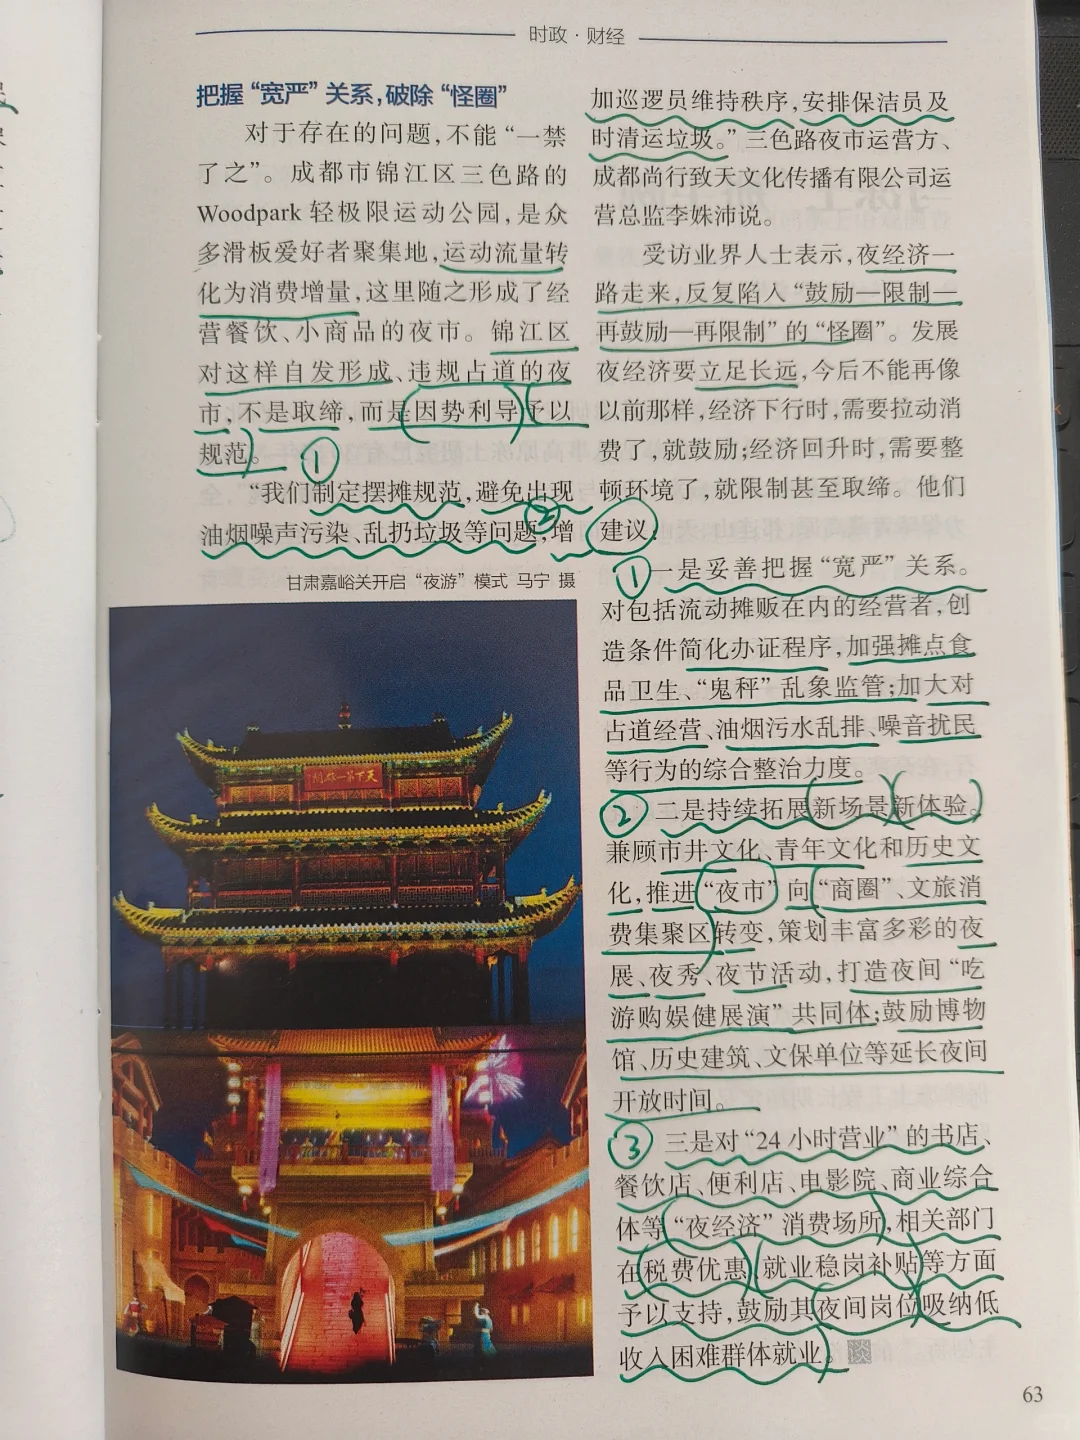 时政·财经
把握“宽严”关系，破除“怪圈”
对于存在的问题，不能“一禁
了之”。成都市锦江区三色路的
Woodpark 轻极限运动公园，是众
多滑板爱好者聚集地，运动流量转
化为消费增量，这里随之形成了经
营餐饮、小商品的夜市。锦江区
对这样自发形成、违规占道的夜
市，不是取缔，而是因势利导予以
规范。
①
“我们制定摆摊规范，避免出现
油烟噪声污染、乱扔垃圾等问题，增
②
甘肃嘉峪关开启“夜游”模式 马宁 摄
加巡逻员维持秩序，安排保洁员及
时清运垃圾。”三色路夜市运营方、
成都尚行致天文化传播有限公司运
营总监李姝沛说。
受访业界人士表示，夜经济一
路走来，反复陷入“鼓励—限制—
再鼓励—再限制”的“怪圈”。发展
夜经济要立足长远，今后不能再像
以前那样，经济下行时，需要拉动消
费了，就鼓励；经济回升时，需要整
顿环境了，就限制甚至取缔。他们
建议：
①一是妥善把握“宽严”关系。
对包括流动摊贩在内的经营者，创
造条件简化办证程序，加强摊点食
品卫生、“鬼秤”乱象监管；加大对
占道经营、油烟污水乱排、噪音扰民
等行为的综合整治力度。
②二是持续拓展新场景新体验。
兼顾市井文化、青年文化和历史文
化，推进“夜市”向“商圈”、文旅消
费集聚区转变，策划丰富多彩的夜
展、夜秀、夜节活动，打造夜间“吃
游购娱健展演”共同体；鼓励博物
馆、历史建筑、文保单位等延长夜间
开放时间。
③三是对“24小时营业”的书店、
餐饮店、便利店、电影院、商业综合
体等“夜经济”消费场所，相关部门
在税费优惠、就业稳岗补贴等方面
予以支持，鼓励其夜间岗位吸纳低
收入困难群体就业。
63